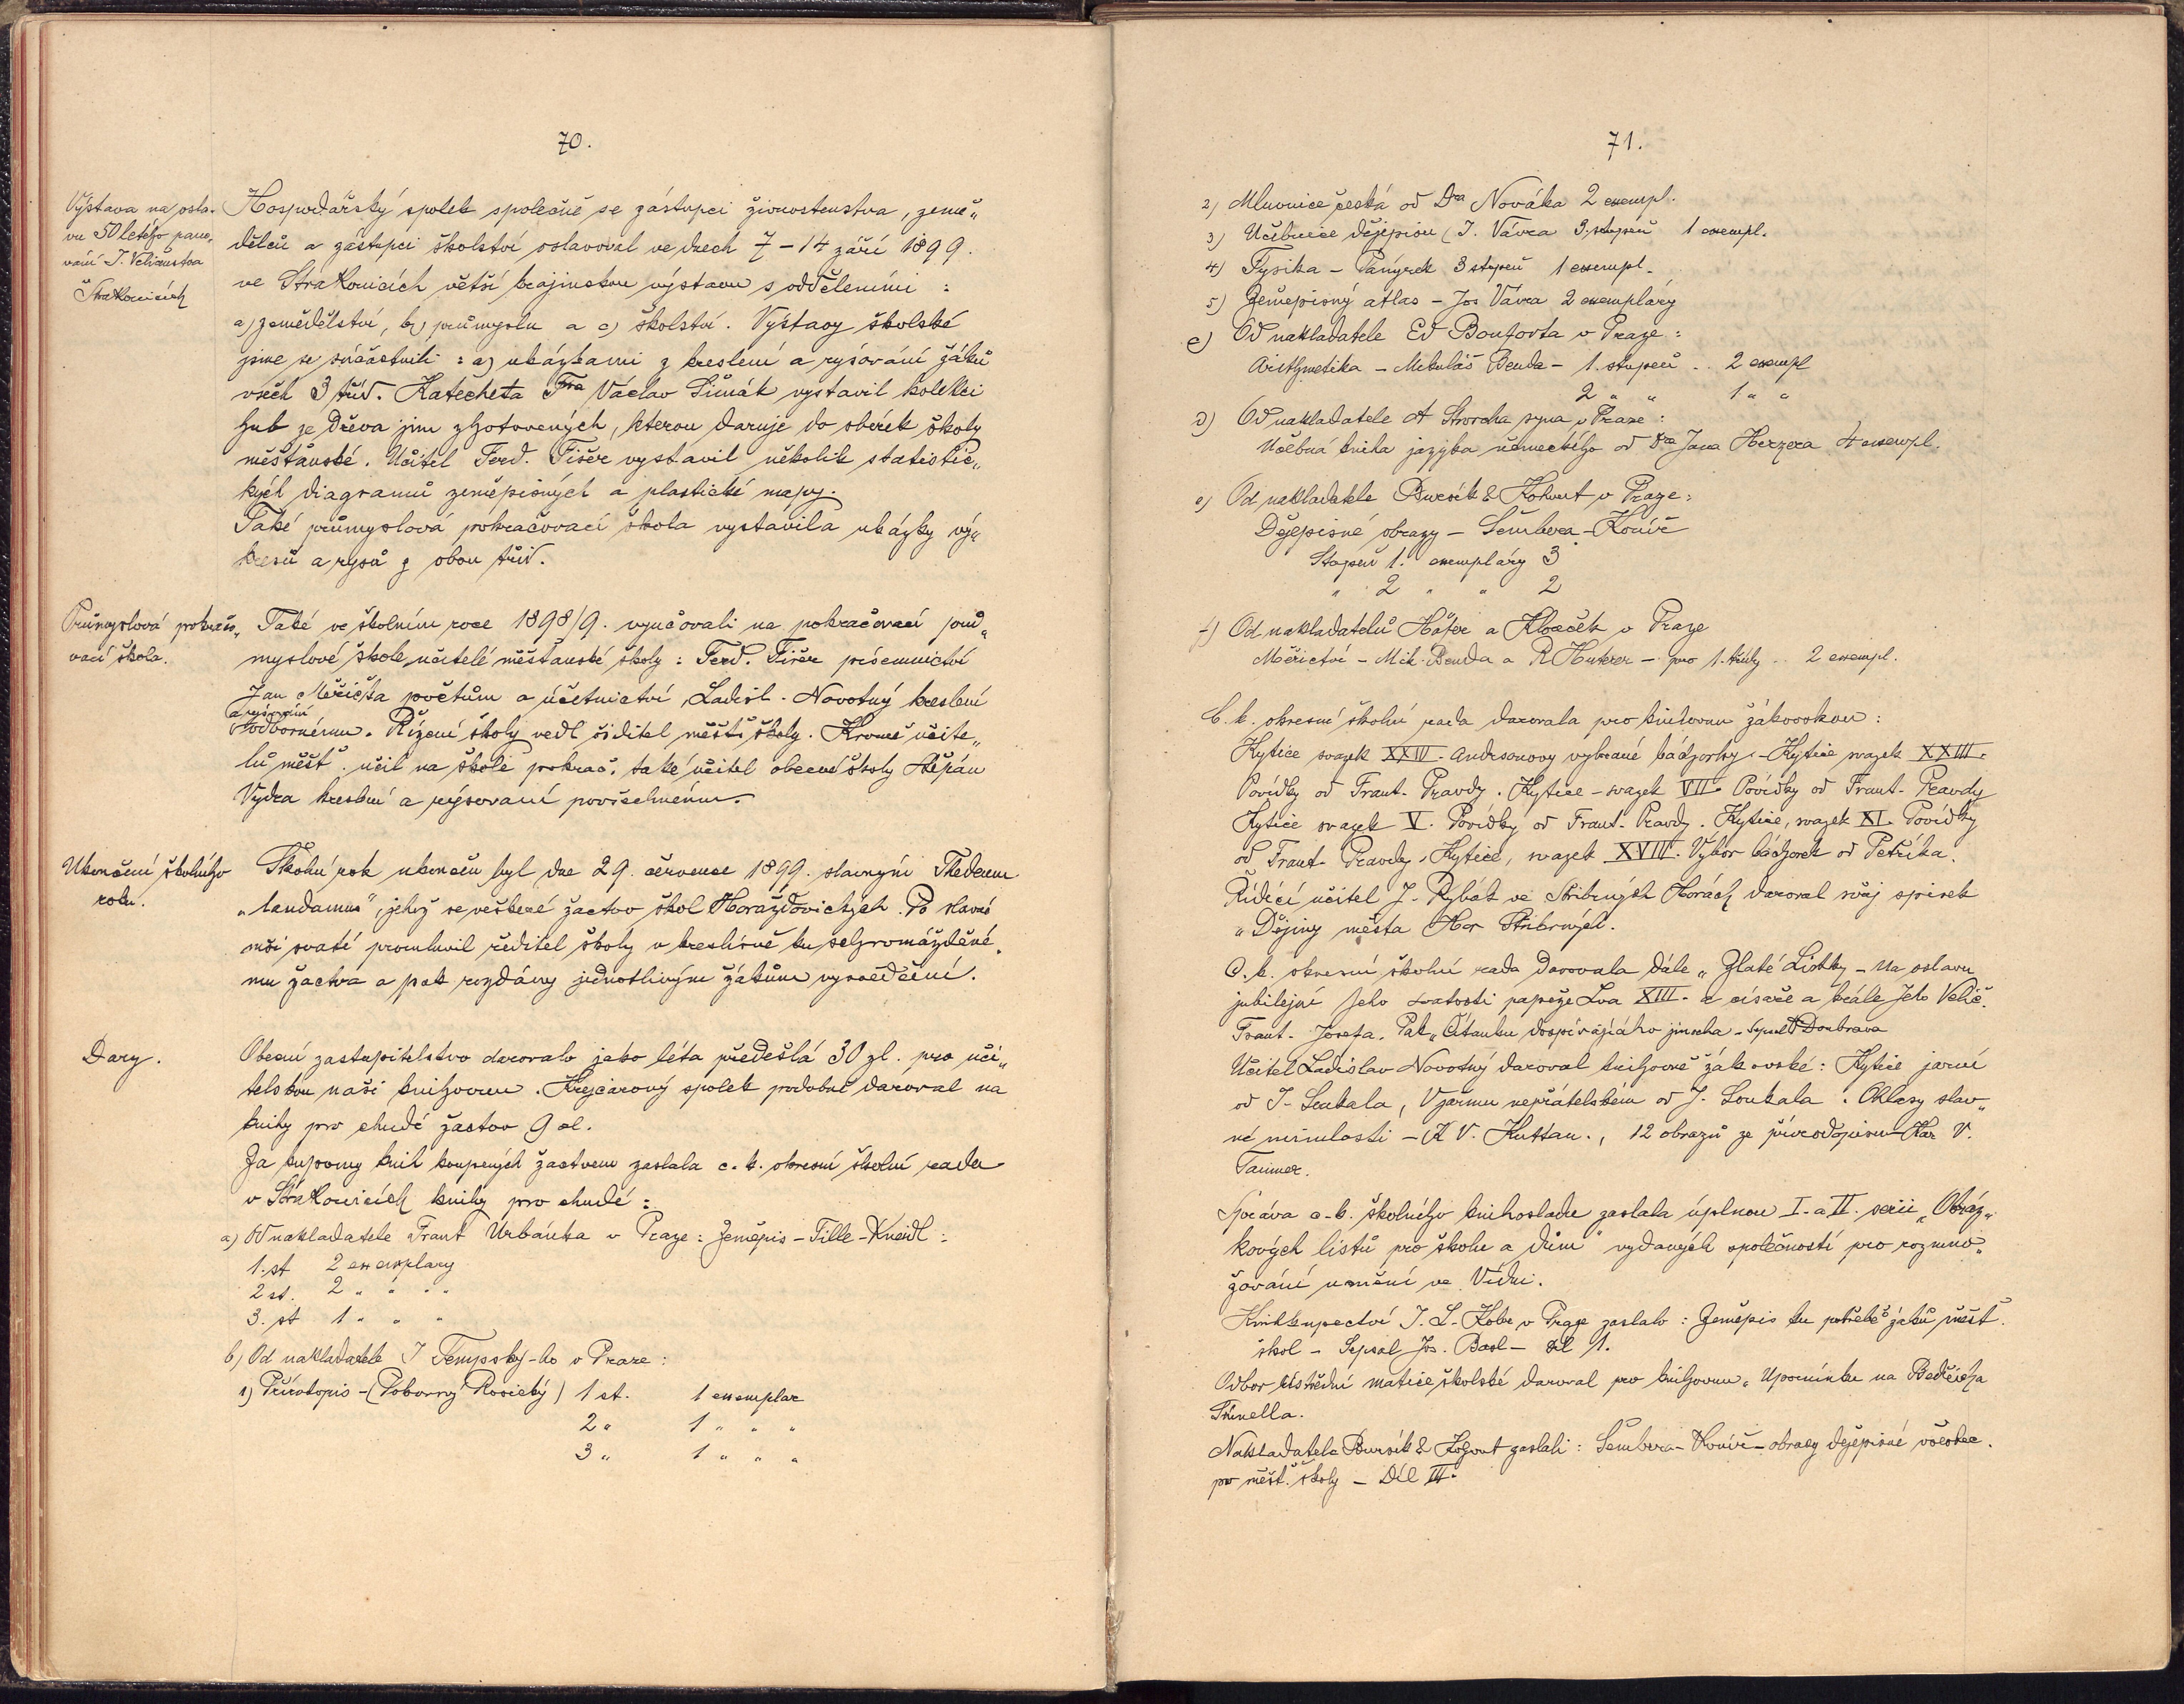 70.
Výstava na osla-
vu 50 letého pano-
vání J. Veličenstva
Strakonicích
Hospodářský spolek společně se zástupci živnostenstva, země„
dělců a zástupci školství oslavoval ve dnech 7-14 září 1899.
ve Strakonicích větší krajinskou výstavu s odděleními :
a) zemědělství, b) průmyslu a c) školství. Výstavy školské
jsme se súčastnili : a) ukázkami z kreslení a rýsování žáků
všech 3 tříd. Katecheta Václav Šimák vystavil kolekci
hub ze dřeva jím zhotovených, kterou daruje do sbírek školy
měšťanské. Učitel Ferd. Fišer vystavil několik statistic„
kých diagramů zeměpisných a plastické mapy.
Také průmyslová pokračovací škola vystavila ukázky vý„
kresů a rysů z obou tříd.
Průmyslová pokračo„
vací škola.
Také ve školním roce 1898/9. vyučovali na pokračovací prů„
myslové škole učitelé měšťanské školy : Ferd. Fišer písemnictví
Jan Měřička počtům a účetnictví, Ladisl. Novotný kreslení
a rýsování
odbornému. Řízení školy vedl ředitel měšť. školy. Kromě učite„
lů měšť. učil na škole pokrač. také učitel obecné školy Štěpán
Vydra kreslení a rýsovaní povšechnému.
Ukončení školního
roku.
Školní rok ukončen byl dne 29. července 1899. slavným Thedeum
„laudamus", jehož se veškeré žactvo škol Horažďovických. Po slavné
mši svaté promluvil ředitel školy v kreslírně ku shromážděné„
mu žactvu a pak rozdány jednotlivým žákům vysvědčení.
Dary.
Obecní zastupitelstvo darovalo jako léta předešlá 30 zl. pro uči„
telskou naši knihovnu. Krejcarový spolek podobně daroval na
knihy pro chudé žactvo 9 zl.
Za kupony knih koupených žactvem zaslala c. k. okresní školní rada
v Strakonicích knihy pro chudé :
a) Od nakladatele Frant Urbánka v Praze : Zeměpis - Tille - Kneidl :
1. st 2 exemplary
2 st. 2 „ „ „
3. st 1 „ „ „
b) Od nakladatele J Tempský-ho v Praze :
1) Přírodopis - (Pokorný Rosický) 1 st. 1 exemplar
2 „ 1 „ „ „
3 „ 1 „ „ „
71.
2) Mluvnice česká od Dra Nováka 2 exempl.
3) Učebnice dějepisu (J. Vávra 3. stupeň 1 exempl.
4) Fysika - Panýrek 3 stupeň 1 exempl.
5) Zeměpisný atlas - Jos Vávra 2 exempláry
c) Od nakladatele Ed Beauforta v Praze :
Arithmetika - Mikuláš Benda - 1. stupeň .. 2 exempl
2 „ „ 1 „ „
d) Od nakladatele A Storcha syna v Praze :
Učebná kniha jazyka německého od Dra Jana Herzera 4 exempl.
e) Od nakladatele Bursík & Kohout v Praze :
Dějepisné obrazy - Šembera - Koníř
Stupeň 1. exempláry 3
„ 2 „ „ 2
f) Od nakladatelů Höfer a Klouček v Praze
Měřictví - Mik. Benda a R Huterer - pro 1. třídy .. 2 exempl.
C. k. okresní školní rada darovala pro knihovnu žákovskou :
Kytice svazek XXIV. Andersonovy vybrané bádzorky. - Kytice svazek XXIII.
Povídky od Frant. Pravdy. Kytice - svazek VII. Povídky od Frant. Pravdy
Kytice svazek V. Povídky od Frant. Pravdy. Kytice, svazek XI. Povídky
od Frant. Pravdy. Kytice, svazek XVIII. Výbor bádzorek od Petříka.
Řídící učitel J. Rybák ve Stribrných Horách daroval svůj spisek
„Dějiny města Hor Stribrných.
C. k. okresní školní rada darovala dále „Zlaté Lístky - na oslavu
jubilejní Jeho svatosti papeže Lva XIII. a císaře a krále Jeho Velič.
Frant. Josefa. Pak „Čítanku dospívajícího jinocha - sepsal Doubrava
Učitel Ladislav Novotný daroval knihovně žákovské : Kytice jarní
od J. Soukala, V jarmu nepřátelském od J. Soukala. Ohlasy slav„
né minulosti - (K V. Kuttan., 12 obrazů ze přírodopisu - Kar V.
Správa c. k. školního knihoskladu zaslala úplnou I. a II. serii „Obráz„
kových listů pro školu a dům" vydaných společností pro rozmno„
žování umění ve Vídni.
Knihkupectví I. L. Kobr v Praze zaslalo : Zeměpis ku potřebě žáků měšť.
škol - Sepsal Jos. Basl - díl 1.
Odbor ústřední matice školské daroval pro knihovnu „Upomínku na Bedřicha
Nakladatele Bursík & Kohout zaslali : Šembera - Koníř - obrazy dějepisné
pro měšť. školy - Díl III.